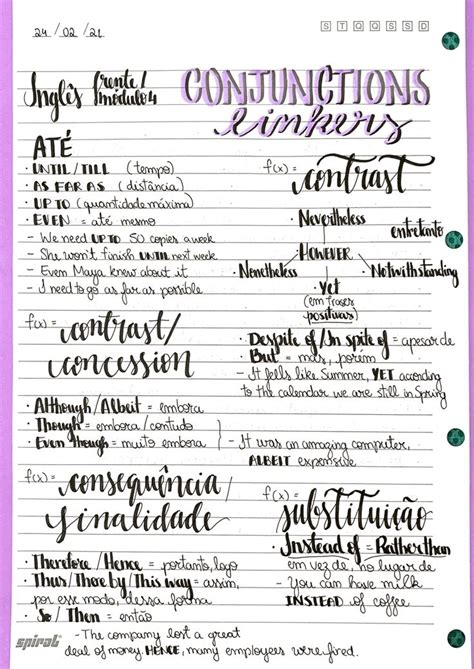 24 / 02 / 21
S T Q Q S S D
Inglês frente/ módulo 4
CONJUNCTIONS
linkers
ATÉ
· UNTIL / TILL (tempo)
· AS FAR AS (distância)
· UP TO (quantidade máxima)
· EVEN = até mesmo
- We need UP TO 50 copies a week
- She won't finish UNTIL next week
- Even Maya knew about it
- I need to go as far as possible
f(x) = contrast
· Nevertheless
entretanto
· HOWEVER
· Nonetheless
· Notwithstanding
· Yet
(em frases
positivas)
f(x) = contrast/
concession
· Despite of / In spite of = apesar de
· But = mas, porém
- It feels like Summer, YET according
to the calendar we are still in Spring
· Although / Albeit = embora
· Though = embora / contudo
· Even though = muito embora
- It was an amazing computer,
ALBEIT expensive
f(x) = consequência/
finalidade
· Therefore / Hence = portanto, logo
· Thus / There by / This way = assim,
por esse modo, dessa forma
· So / Then = então
- The company lost a great
deal of money HENCE, many employees were fired.
f(x) = substituição
· Instead of = Rather than
em vez de, no lugar de
- You can have milk
INSTEAD of coffee
spiral